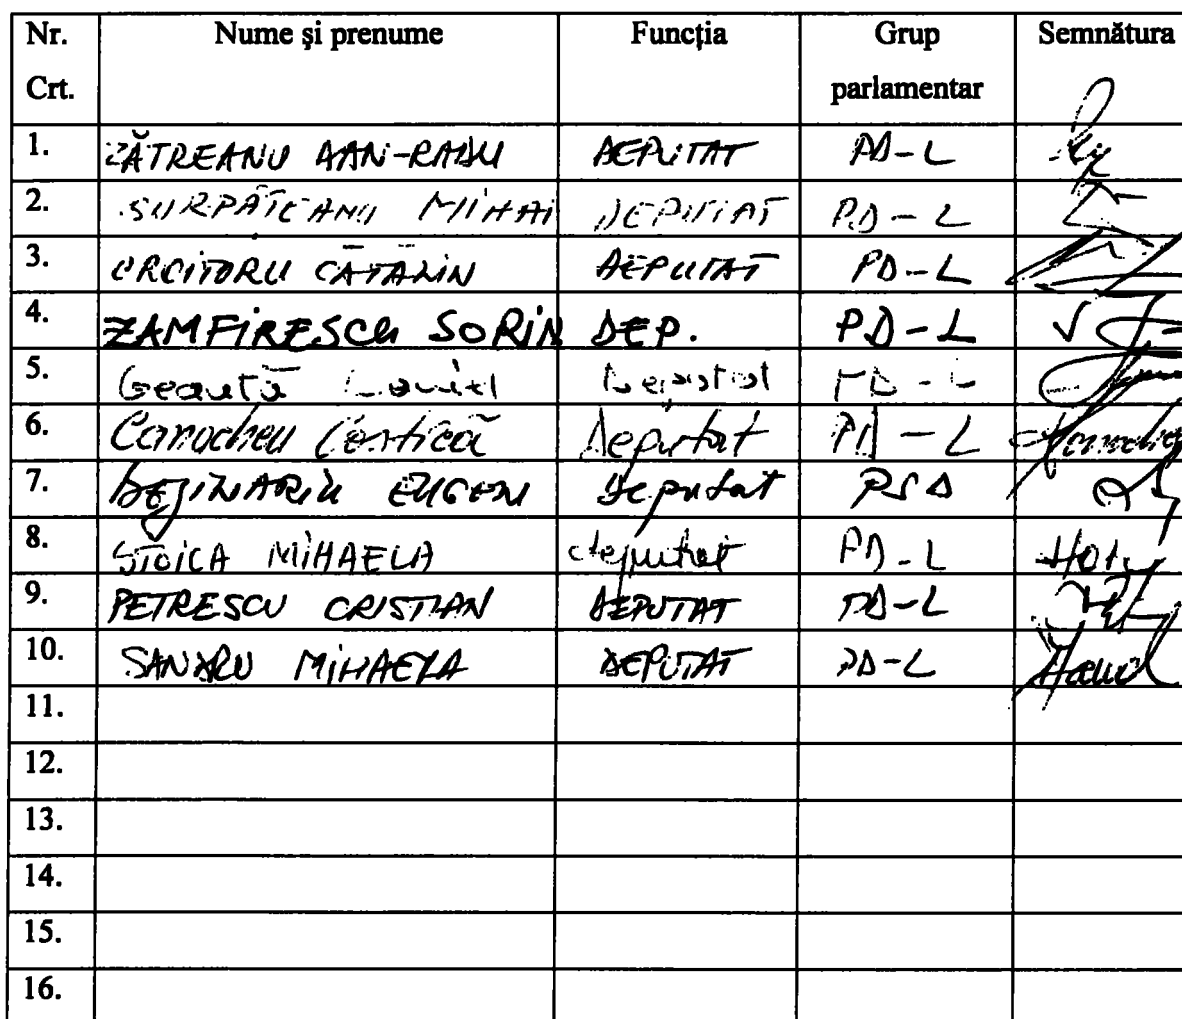 Nr. Crt. Nume și prenume Funcția Grup parlamentar Semnătura
1. ZĂTREANU DAN-RADU DEPUTAT PD-L
2. SURPĂȚEANU MIHAI DEPUTAT PD-L
3. CROITORU CĂTĂLIN DEPUTAT PD-L
4. ZAMFIRESCU SORIN DEP. PD-L
5. Geantă Deputat PD-L
6. Canacheu Costică Deputat PD-L
7. EUGEN Deputat PSD
8. STOICA MIHAELA deputat PD-L
9. PETRESCU CRISTIAN DEPUTAT PD-L
10. SANDRU MIHAELA DEPUTAT PD-L
11.
12.
13.
14.
15.
16.